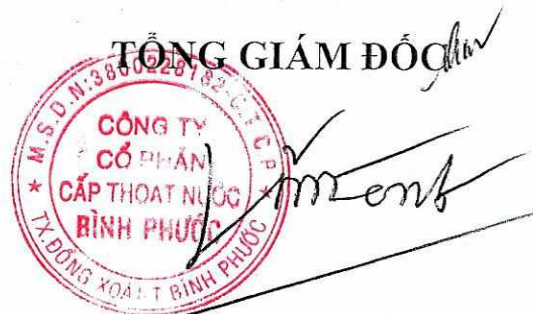 TỔNG GIÁM ĐỐC
M.S.D.N:3800228182-C.T.C.P
CÔNG TY
CỔ PHẦN
CẤP THOÁT NƯỚC
BÌNH PHƯỚC
TX.ĐỒNG XOÀI-T BÌNH PHƯỚC